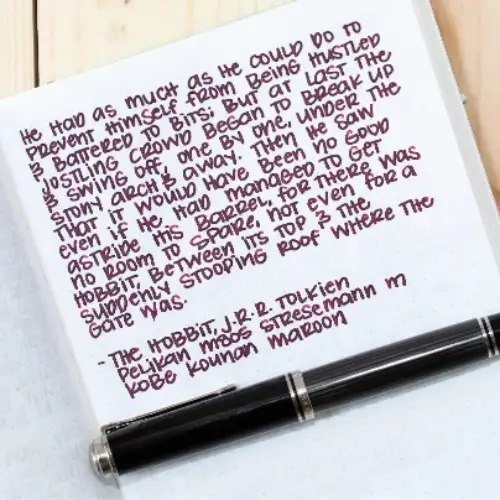 He had as much as he could do to
prevent himself from being hustled
& battered to bits; but at last the
jostling crowd began to break up
& swing off, one by one, under the
stony arch & away. Then he saw
that it would have been no good
even if he had managed to get
astride his barrel, for there was
no room to spare, not even for a
hobbit, between its top & the
suddenly stooping roof where the
gate was.
- The Hobbit, J.R.R. Tolkien
Pelikan M805 Stresemann M
Kobe Kounan Maroon